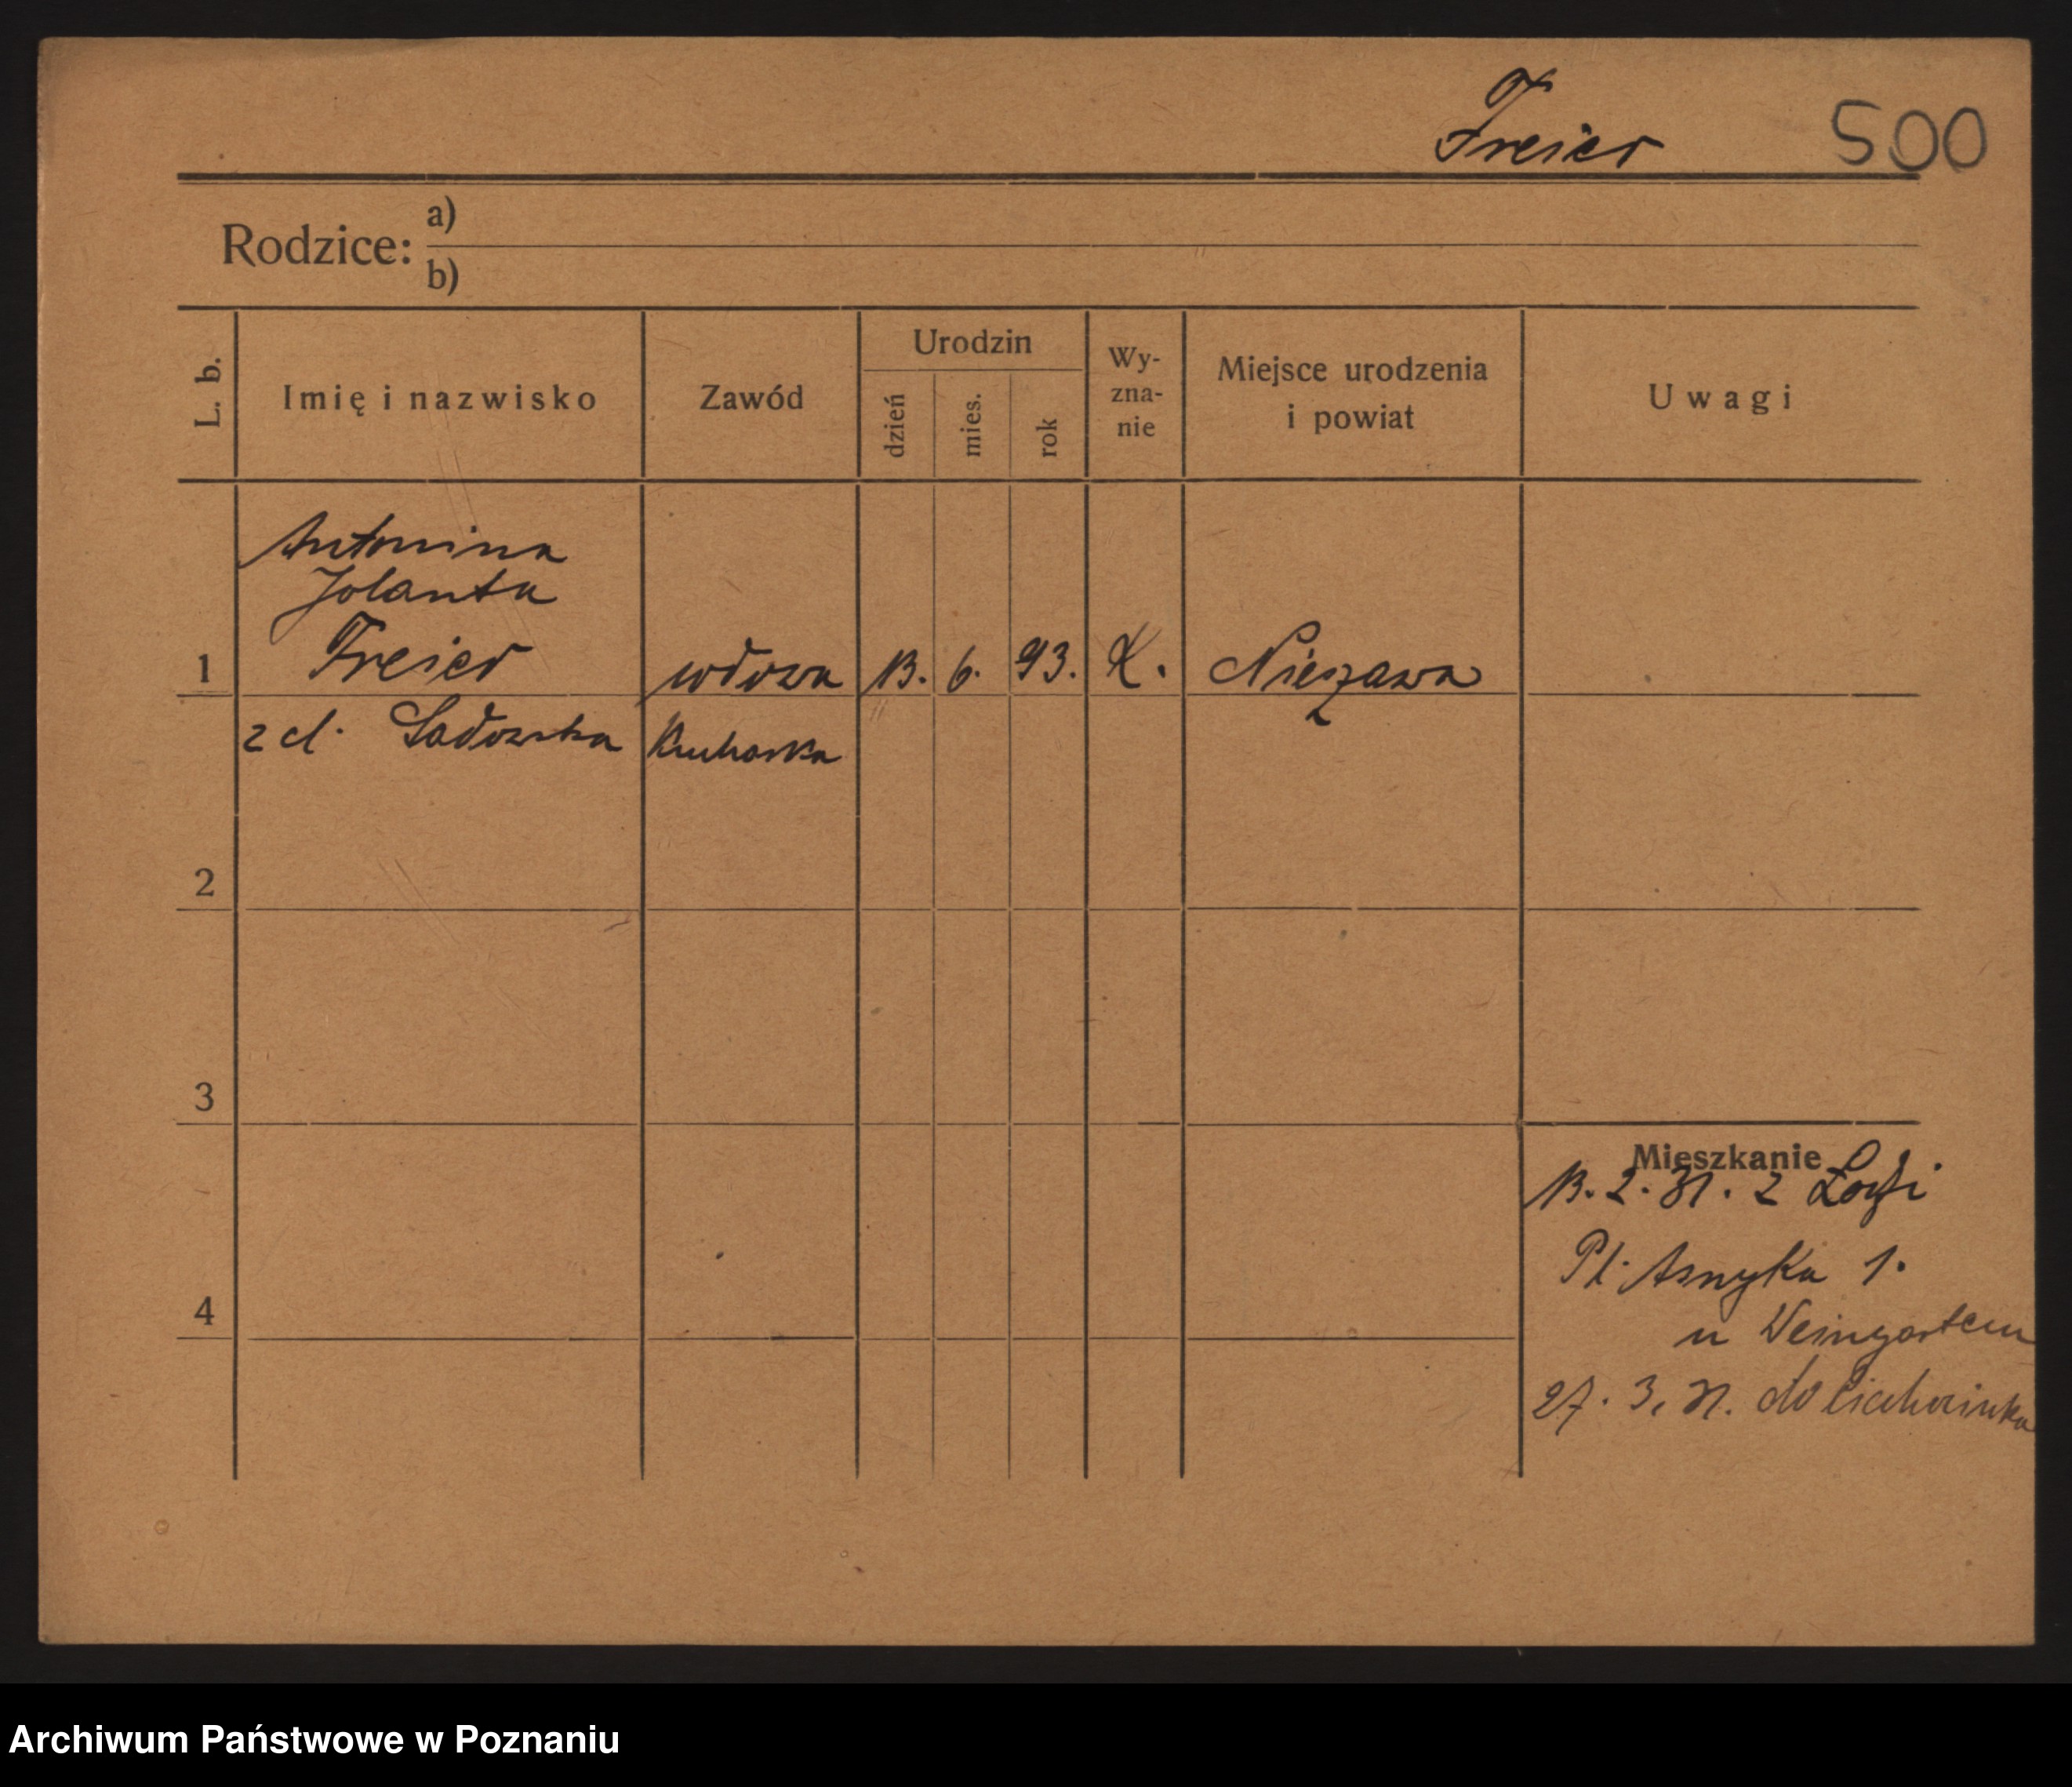 Freier 500
Rodzice: a)
b)
L. b.
Imię i nazwisko
Zawód
Urodzin
dzień
mies.
rok
Wy-
zna-
nie
Miejsce urodzenia
i powiat
Uwagi
Antonina
Jolanta
1 Freier wdowa 13. 6. 93. K. Nieszawa
z d. Sadowska Kucharka
2
3
Mieszkanie
13. 2. 31. z Łodzi
Pl. Asnyka 1.
4
u Weingarten
27. 3. 31. do Ciechocinka
Archiwum Państwowe w Poznaniu